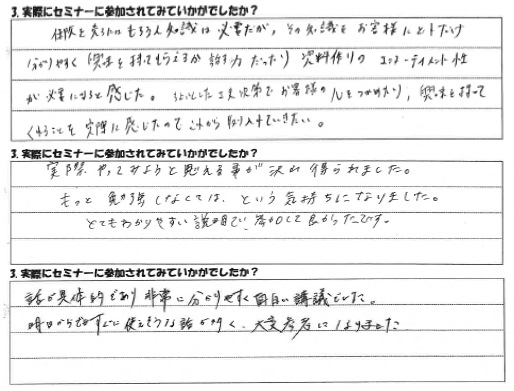 3. 実際にセミナーに参加されてみていかがでしたか？
住宅を売るにはもちろん知識は必要だが、その知識をお客様にどれだけ
分かりやすく興味を持ってもらえるか話す力だったり資料作りのエンターテイメント性
が必要になると感じた。ちょっとした工夫次第でお客様の心をつかめたり、興味を持って
くれることを実際に感じたのでこれから取り入れていきたい。
3. 実際にセミナーに参加されてみていかがでしたか？
実際やってみようと思える事が沢山得られました。
もっと勉強しなくては、という気持ちになりました。
とてもわかりやすい説明で、参加して良かったです。
3. 実際にセミナーに参加されてみていかがでしたか？
話が具体的であり非常に分かりやすく面白い講議でした。
明日からでもすぐに使えそうな話が多く、大変参考になりました